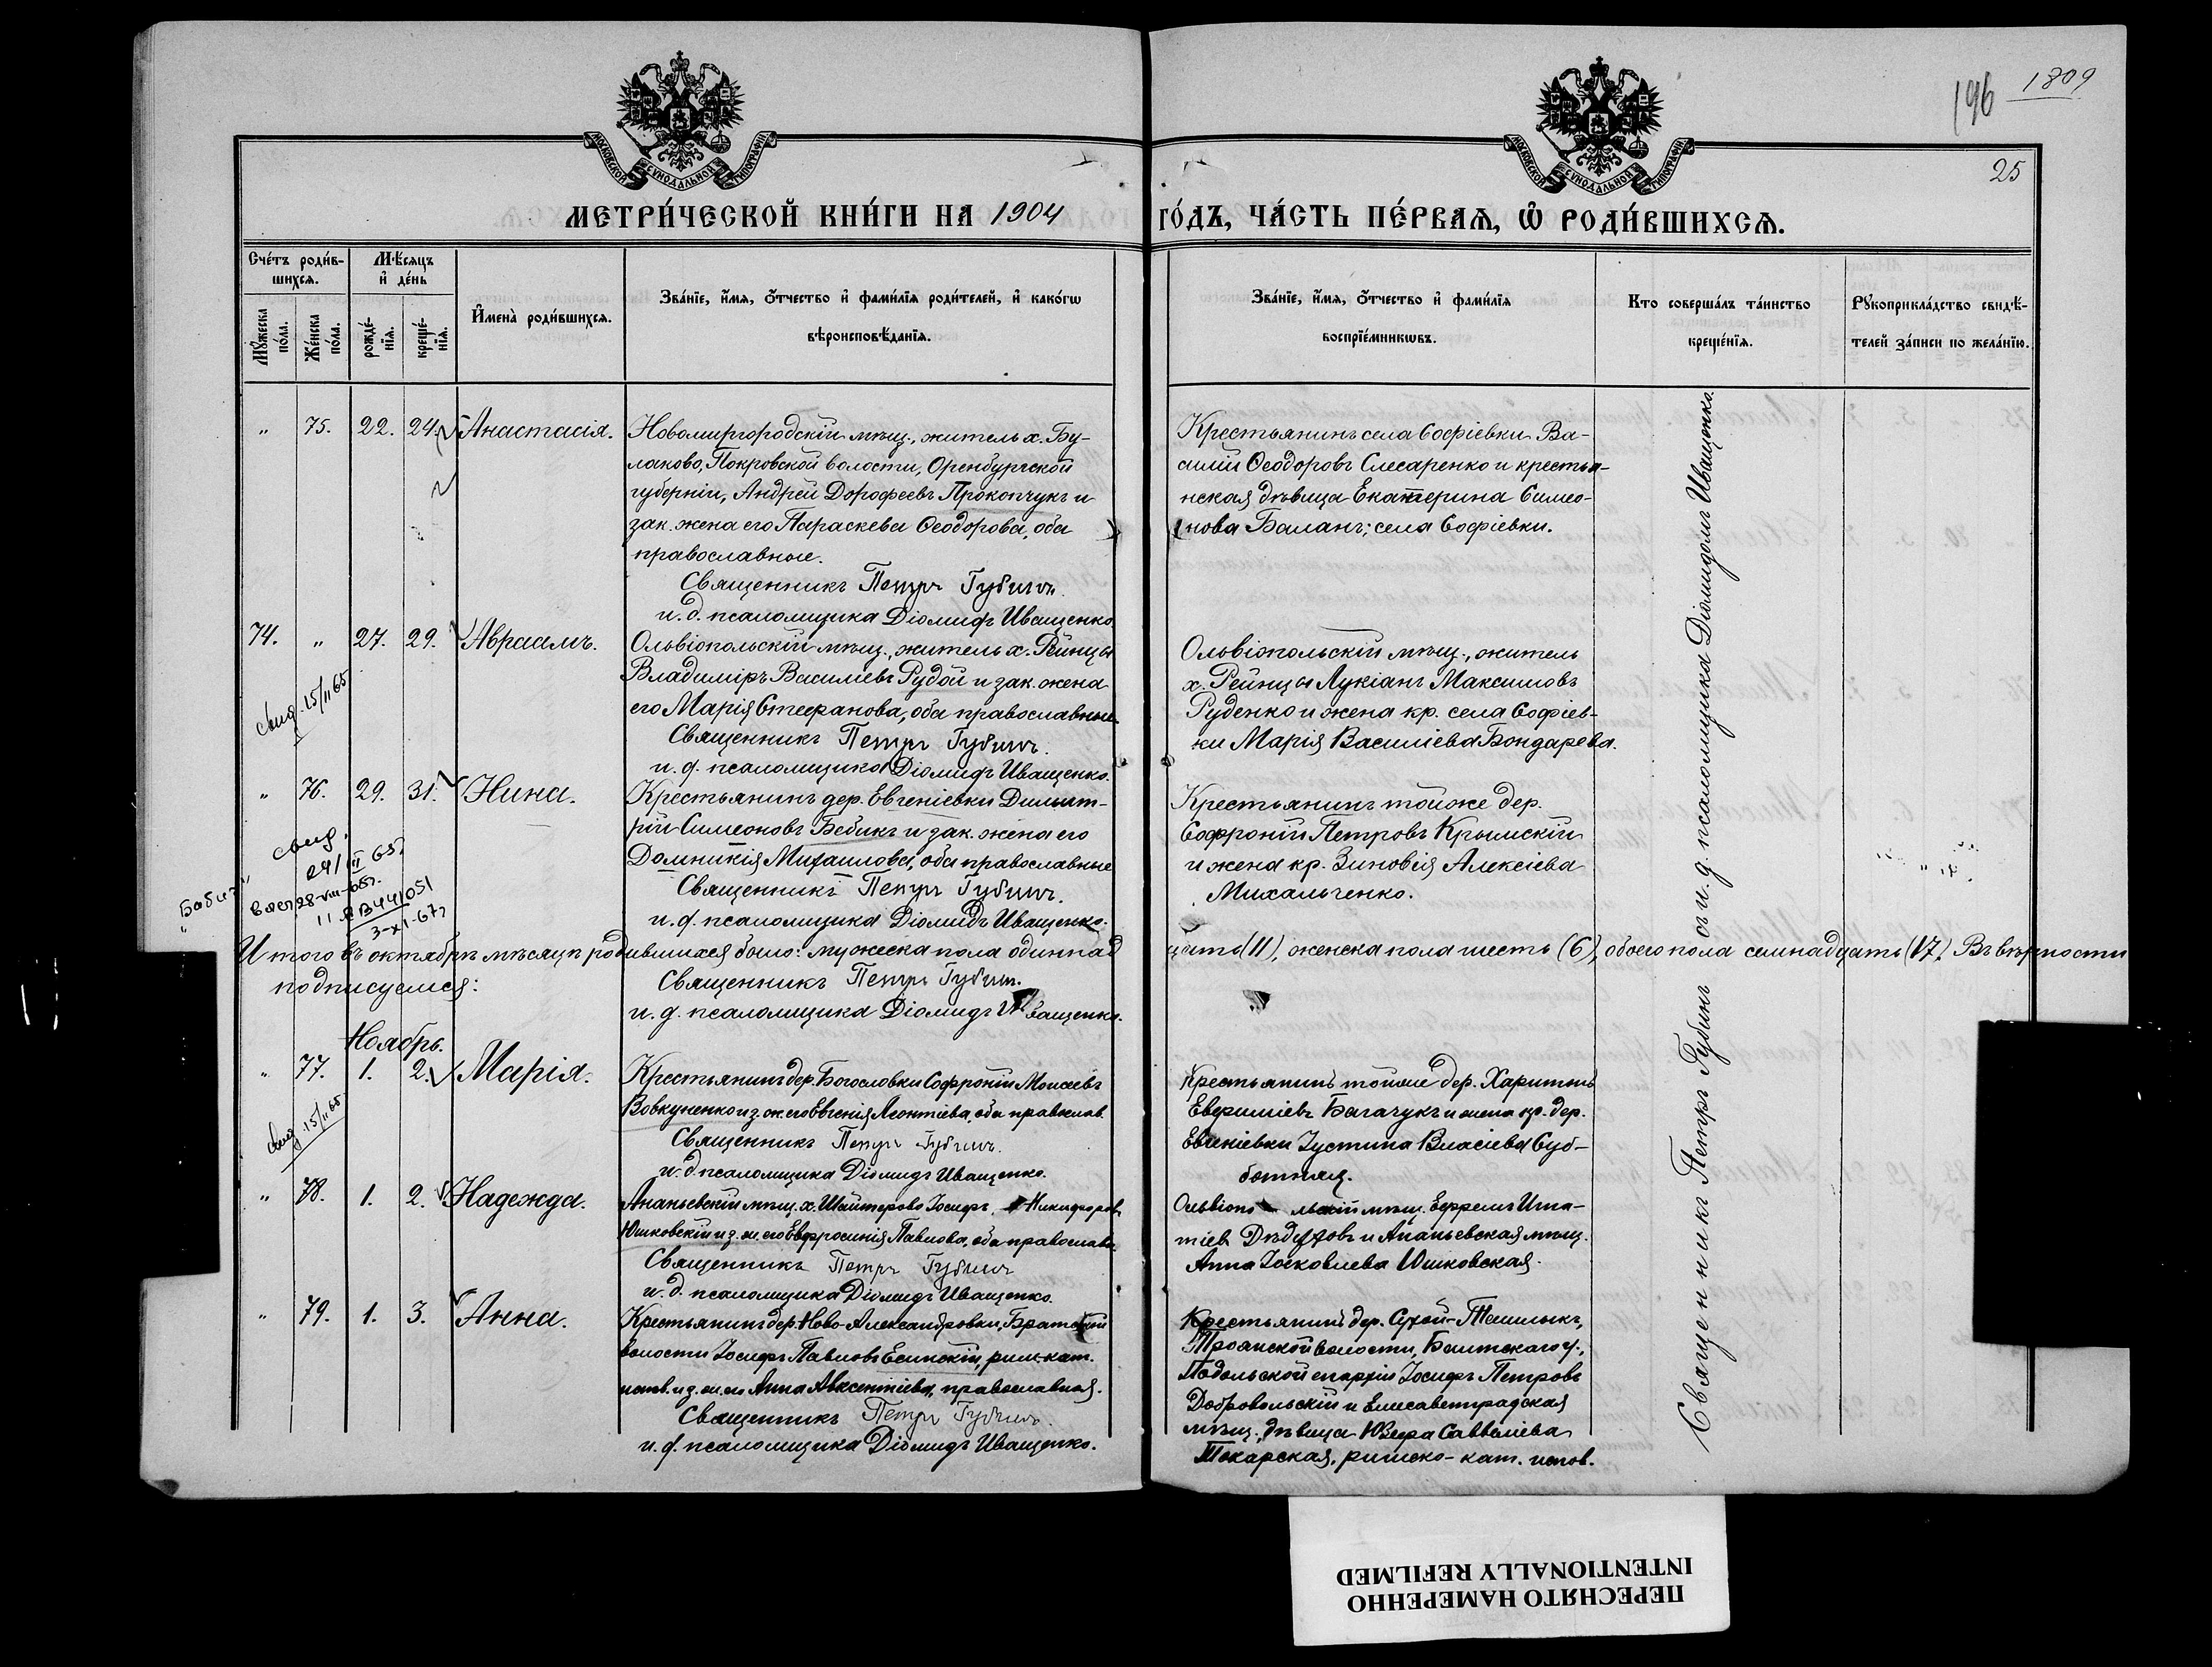 196
1809
25
МОСКОВСКОЙ СУНОДАЛЬНОЙ ТИПОГРАФІИ
МОСКОВСКОЙ СУНОДАЛЬНОЙ ТИПОГРАФІИ
МЕТРИ́ЧЕСКОЙ КНИ́ГИ НА 1904 ГО́ДЪ, ЧА́СТЬ ПЕ́РВАѦ, Ѡ҆ РОДИ́ВШИХСѦ.
Сче́тъ роди́в-
шихсѧ.
Мꙋ́жеска по́ла.
Же́нска по́ла.
Мѣ́сѧцъ
и҆ де́нь
рожде́-
нїѧ.
креще́-
нїѧ.
И҆мена̀ роди́вшихсѧ.
Зва́нїе, и҆́мѧ, ѻ҆́тчество и҆ фами́лїѧ роди́телей, и҆ како́гѡ
вѣроисповѣ́данїѧ.
Зва́нїе, и҆́мѧ, ѻ҆́тчество и҆ фами́лїѧ
воспрїе́мникѡвъ.
Кто соверша́лъ та́инство
креще́нїѧ.
Рꙋкоприкла́дство свидѣ́-
телей за́писи по жела́нїю.
" 75. 22. 24. Анастасія.
Новомиргородскій мѣщ., житель х. Бу-
лаково, Покровской волости, Оренбургской
губерніи, Андрей Дорофеевъ Прокопчукъ и
зак. жена его Параскева Ѳеодорова, оба
православные.
Священникъ Петръ Губинъ.
и. д. псаломщика Діомидъ Иващенко
Крестьянинъ села Софіевки Ва-
силій Ѳеодоровъ Слесаренко и крестья-
нская дѣвица Екатерина Симео-
нова Баланъ; села Софіевки.
74. " 27. 29. Авраамъ.
свид. 15/II 65
Ольвіопольскій мѣщ., житель х. Рейнцы
Владиміръ Василіевъ Рудой и зак. жена
его Марія Стефанова, оба православные.
Священникъ Петръ Губинъ.
и. д. псаломщика Діомидъ Иващенко.
Ольвіопольскій мѣщ., житель
х. Рейнцы Лукіанъ Максимовъ
Руденко и жена кр. села Софіев-
ки Марія Василіева Бондарева.
" 76. 29. 31. Нина.
свид.
24/II 65г.
28-VIII-65г.
II ЯВ 441051
3-XI-67г
Крестьянинъ дер. Евгеніевки Димит-
рій Симеоновъ Бебикъ и зак. жена его
Домникія Михаилова, оба православные
Священникъ Петръ Губинъ.
и. д. псаломщика Діомидъ Иващенко.
Крестьянинъ тойже дер.
Софроній Петровъ Крымскій
и жена кр. Зиновія Алексіева
Михальченко.
Итого въ октябрѣ мѣсяцѣ родившихся было: мужеска пола одиннад цать (11), женска пола шесть (6), обоего пола семнадцать (17). Въ вѣрности
подписуемся:
Священникъ Петръ Губинъ.
и. д. псаломщика Діомидъ Иващенко.
Ноябрь.
" 77. 1. 2. Марія.
свид. 15/II 65.
Крестьянинъ дер. Богословки Софроній Моисеевъ
Вовкуненко и з. ж. его Евгенія Леонтіева, оба православ.
Священникъ Петръ Губинъ.
и. д. псаломщика Діомидъ Иващенко.
Крестьянинъ тойже дер. Харитонъ
Евфиміевъ Багачукъ и жена кр. дер.
Евгеніевки Іустина Власіева Суб-
ботняя.
" 78. 1. 2. Надежда.
Ананьевскій мѣщ. х. Шайтерово Іосифъ Никифоровъ
Юшковскій и з. ж. его Евфросинія Павлова, оба православн.
Священникъ Петръ Губинъ
и. д. псаломщика Діомидъ Иващенко.
Ольвіопольскій мѣщ. Ефремъ Игна-
тіевъ Дѣдуховъ и Ананьевская мѣщ.
Анна Іаковлева Юшковская.
" 79. 1. 3. Анна.
Крестьянинъ дер. Ново-Александровки, Братской
волости Іосифъ Павловъ Есинскій, рим-кат.
испов. и з. ж. его Анна Авксентіева, православная.
Священникъ Петръ Губинъ.
и. д. псаломщика Діомидъ Иващенко.
Крестьянинъ дер. Сухой-Ташлыкъ,
Троянской волости, Балтскаго у.,
Подольской епархіи Іосифъ Петровъ
Добровольскій и Елисаветградская
мѣщ. дѣвица Юзефа Савеліева
Токарская, римско-кат. испов.
Священникъ Петръ Губинъ съ и. д. псаломщика Діомидомъ Иващенко.
ПЕРЕСНЯТО НАМЕРЕННО
INTENTIONALLY REFILMED